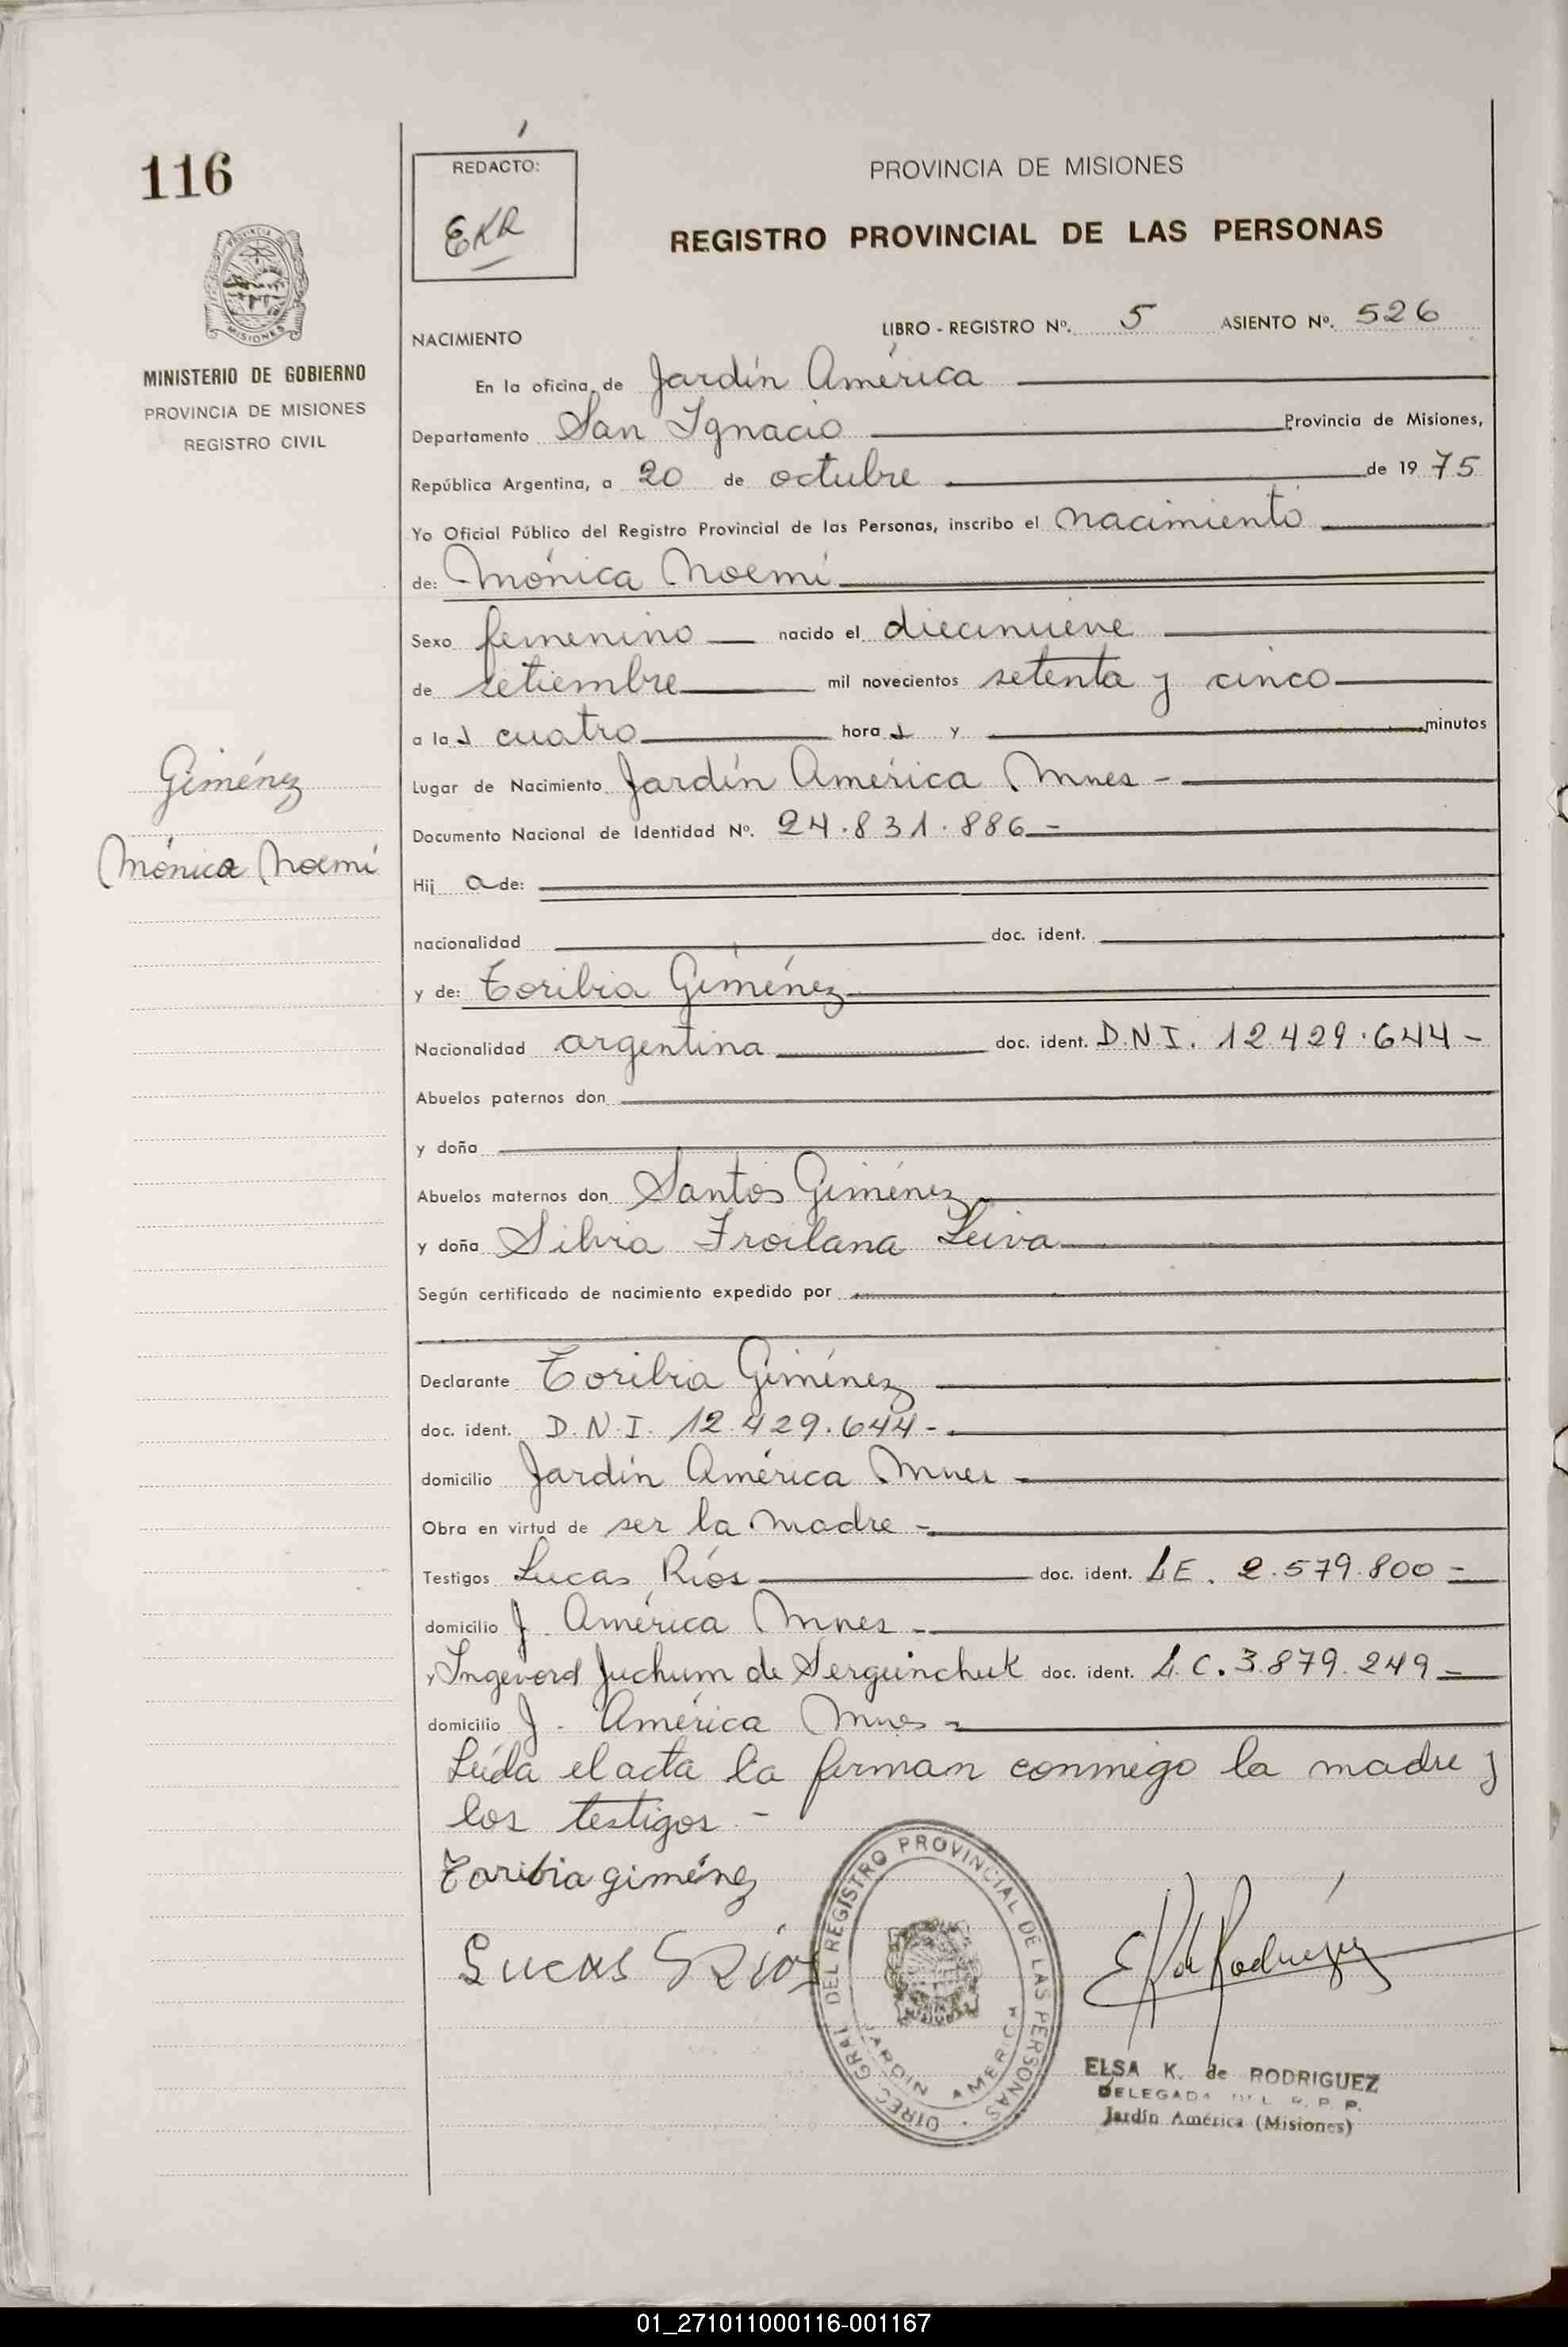 116
REDACTO:
EKR
PROVINCIA DE MISIONES
REGISTRO PROVINCIAL DE LAS PERSONAS
PROVINCIA DE
MISIONES
MINISTERIO DE GOBIERNO
PROVINCIA DE MISIONES
REGISTRO CIVIL
NACIMIENTO
LIBRO - REGISTRO Nº. 5 ASIENTO Nº. 526
En la oficina de Jardín América
Departamento San Ignacio Provincia de Misiones,
República Argentina, a 20 de octubre de 1975
Yo Oficial Público del Registro Provincial de las Personas, inscribo el nacimiento
de: Mónica Noemí
Sexo femenino nacido el diecinueve
de setiembre mil novecientos setenta y cinco
a las cuatro horas y minutos
Giménez
Mónica Noemí
Lugar de Nacimiento Jardín América Mnes -
Documento Nacional de Identidad Nº. 24.831.886 -
Hija de:
nacionalidad doc. ident.
y de: Toribia Giménez
Nacionalidad argentina doc. ident. D.N.I. 12.429.644 -
Abuelos paternos don
y doña
Abuelos maternos don Santos Giménez
y doña Silvia Froilana Leiva
Según certificado de nacimiento expedido por
Declarante Toribia Giménez
doc. ident. D.N.I. 12.429.644 -
domicilio Jardín América Mnes -
Obra en virtud de ser la madre -
Testigos Lucas Ríos doc. ident. L.E. 2.579.800 -
domicilio J. América Mnes -
y Ingevord Juchum de Serguinchuk doc. ident. L.C. 3.879.249 -
domicilio J. América Mnes -
Leída el acta la firman conmigo la madre y
los testigos. -
Toribia giménez
Lucas Ríos
DIREC GRAL DEL REGISTRO PROVINCIAL DE LAS PERSONAS
JARDIN AMERICA
E K de Rodriguez
ELSA K. de RODRIGUEZ
DELEGADA DEL R. P. P.
Jardín América (Misiones)
01_271011000116-001167